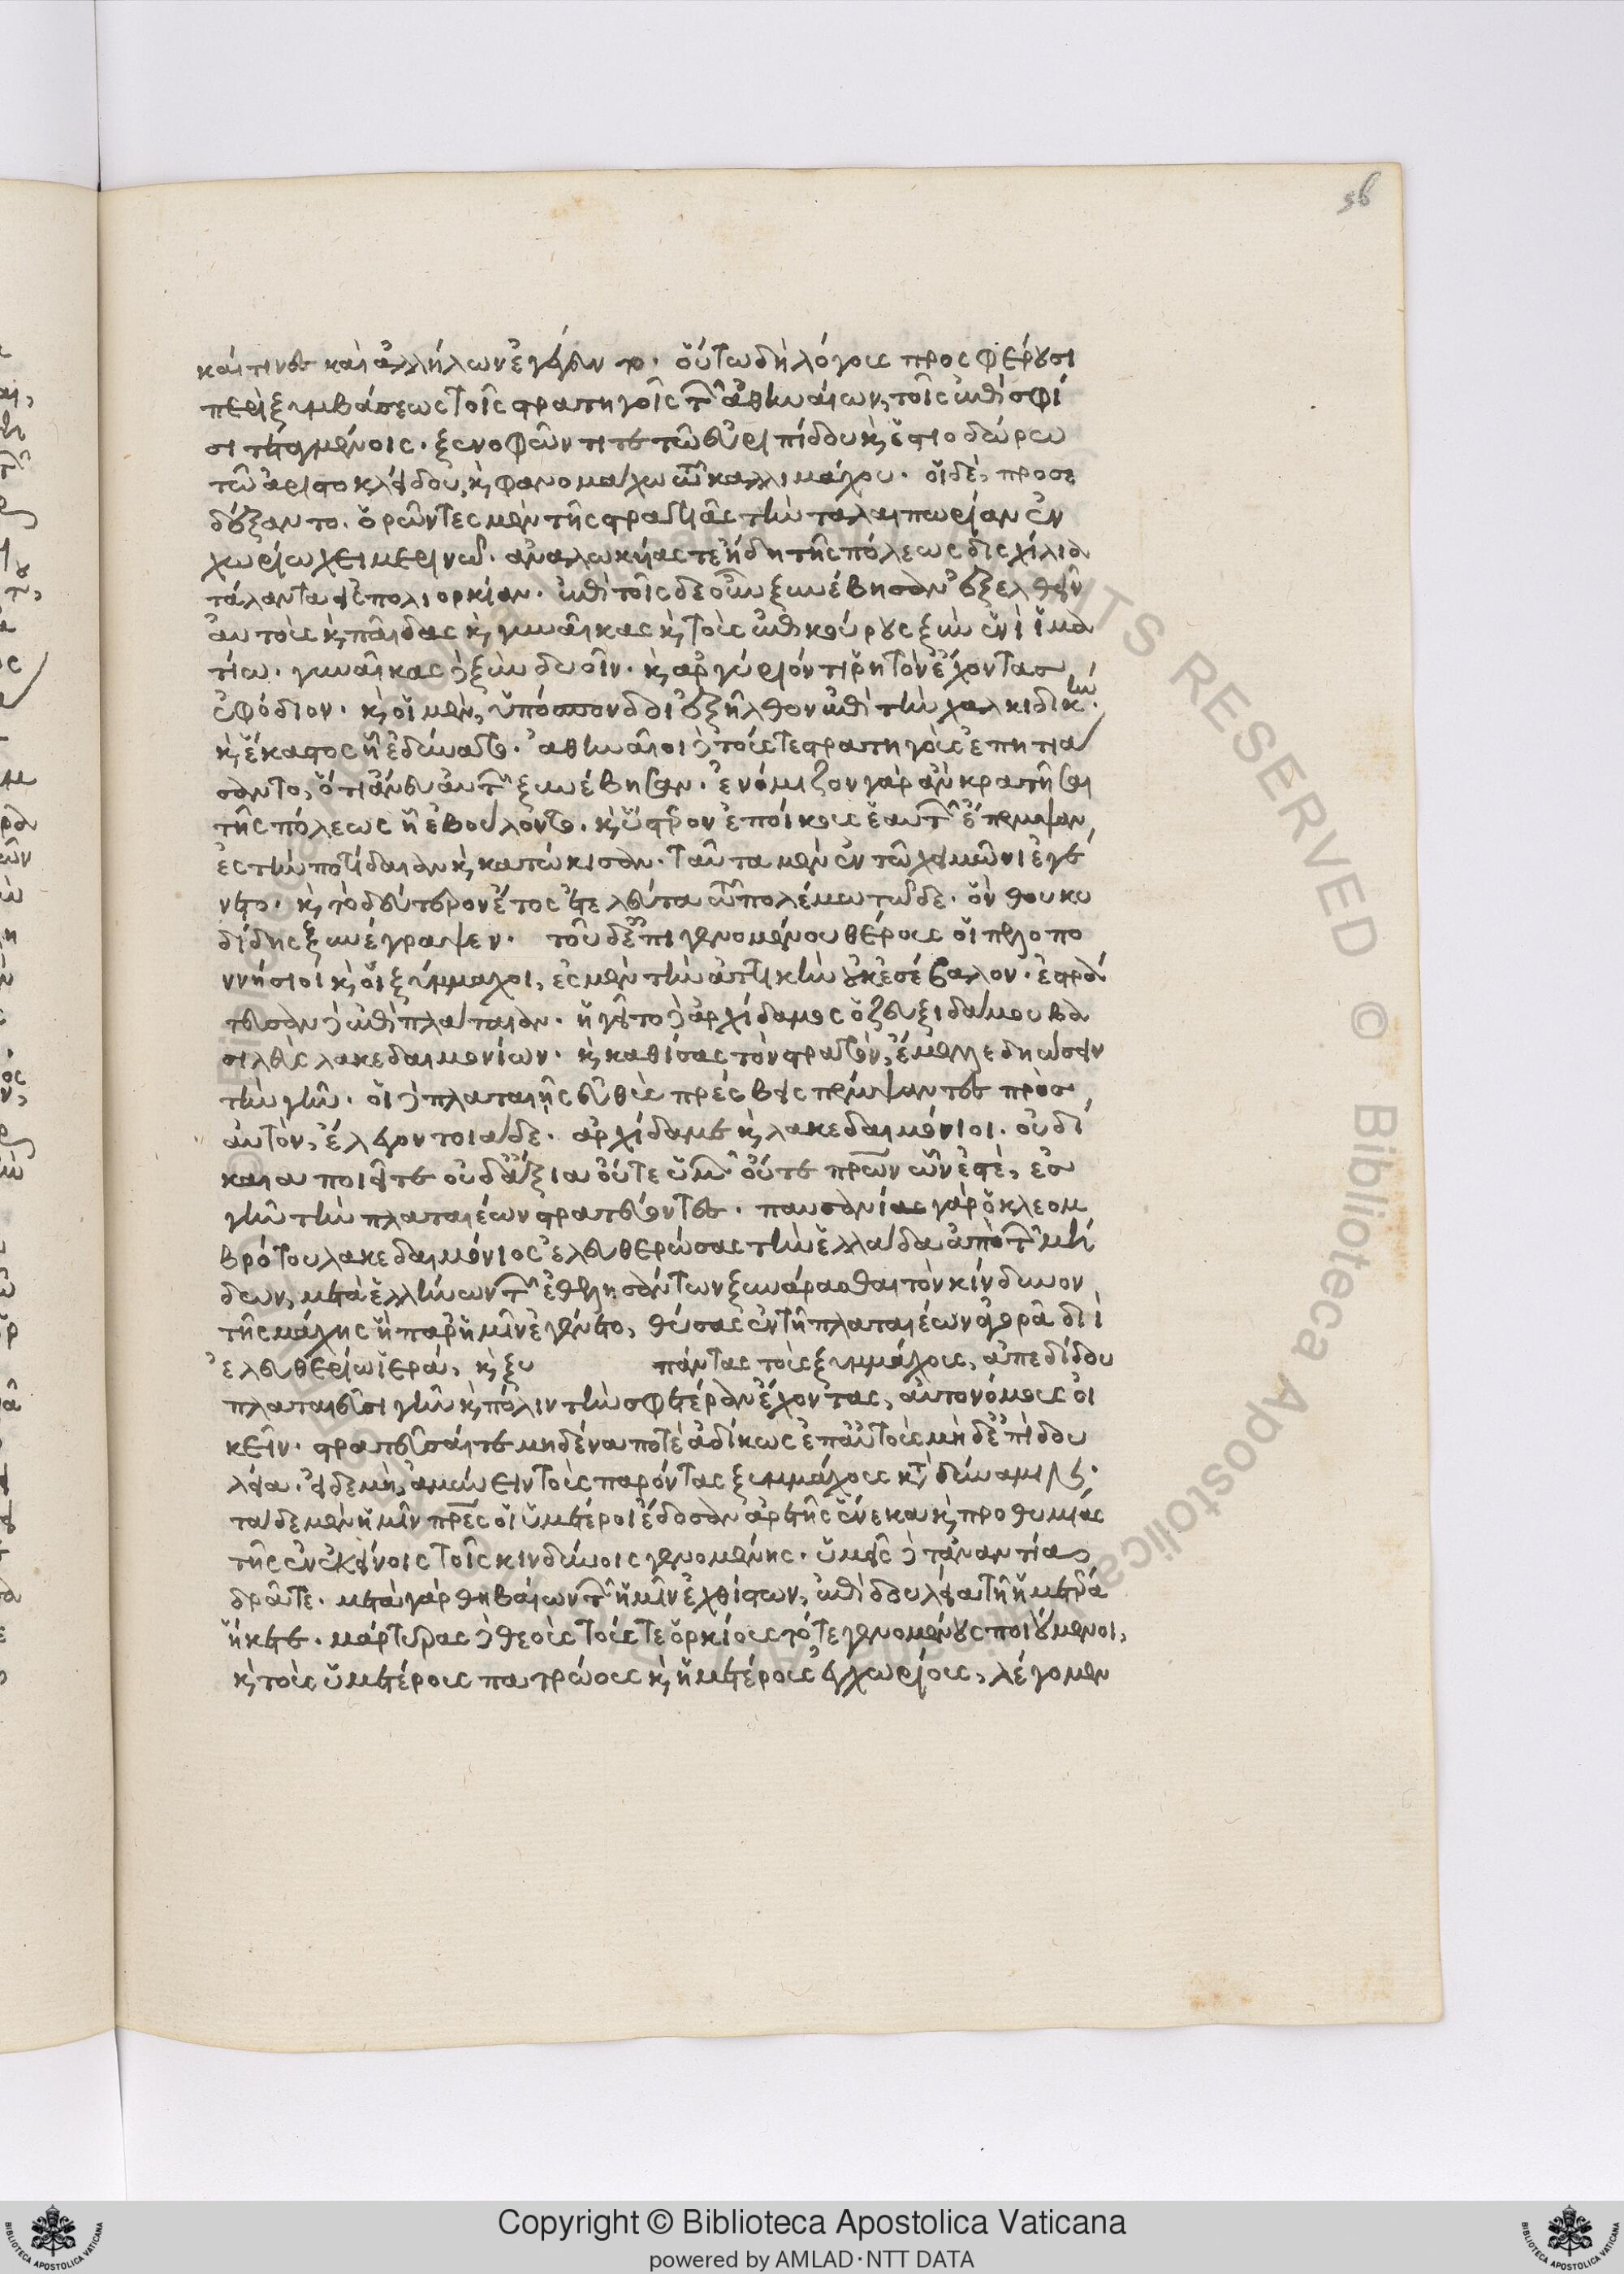 56
καί τινες καὶ ἀλλήλων ἐγέγευντο. οὕτω δὴ λόγους προσφέρουσι
περὶ ξυμβάσεως τοῖς στρατηγοῖς τῶν ἀθηναίων, τοῖς ἐπὶ σφί
σι τεταγμένοις. ξενοφῶντί τε τῶ εὐριπίδου κ, ἑστιοδώρω
τῶ ἀριστοκλείδου, κ, φανομάχω τῶ καλλιμάχου. οἱ δὲ, προσε
δέξαντο. ὁρῶντες μὲν τῆς στρατιᾶς τὴν ταλαιπωρίαν ἐν
χωρίω χειμερινῶ. ἀναλωκυίας τε ἤδη τῆς πόλεως δισχίλια
τάλαντα εἰς πολιορκίαν. ἐπὶ τοῖσδε οὖν ξυνέβησαν ἐξελθεῖν
αὐτοὺς κ, παῖδας κ, γυναῖκας κ, τοὺς ἐπικούρους ξὺν ἑνὶ ἱμα
τίω. γυναῖκας δὲ ξὺν δυοῖν. κ, ἀργύριόν τι ῥητὸν ἔχοντας
ἐφόδιον. κ, οἱ μὲν, ὑπόσπονδοι ἐξῆλθον ἐπὶ τὴν χαλκιδικήν.
κ, ἕκαστος ἧ ἐδύνατο. ἀθηναῖοι δὲ τούς τε στρατηγοὺς ἐπητιά
σαντο, ὅτι ἄνευ αὐτῶν ξυνέβησαν. ἐνόμιζον γὰρ ἂν κρατῆσαι
τῆς πόλεως ἧ ἐβούλοντο. κ, ὕστερον ἐποίκους ἑαυτῶν ἔπεμψαν
ἐς τὴν ποτίδαιαν κ, κατώκισαν. ταῦτα μὲν ἐν τῶ χειμῶνι ἐγέ
νετο. κ, τὸ δεύτερον ἔτος ἐτελεύτα τῶ πολέμω τῶδε. ὃν θουκυ
δίδης ξυνέγραψεν. τοῦ δ' ἐπιγενομένου θέρους οἱ πελοπο
ννήσιοι κ, οἱ ξύμμαχοι, ἐς μὲν τὴν ἀττικὴν οὐκ ἐσέβαλον. ἐστρά
τευσαν δὲ ἐπὶ πλάταιαν. ἡγεῖτο δὲ ἀρχίδαμος ὁ ζευξιδάμου βα
σιλεὺς λακεδαιμονίων. κ, καθίσας τὸν στρατὸν, ἔμελλε δηώσειν
τὴν γῆν. οἱ δὲ πλαταιῆς εὐθὺς πρέσβεις πέμψαντες πρὸς
αὐτὸν, ἔλεγον τοιάδε. ἀρχίδαμε κ, λακεδαιμόνιοι. οὐ δί
καια ποιεῖτε οὐδ' ἄξια οὔτε ὑμῶν οὔτε πρων ὧν ἐστὲ, ἐς
γῆν τὴν πλαταιέων στρατεύοντες. παυσανίας γὰρ ὁ κλεομ
βρότου λακεδαιμόνιος ἐλευθερώσας τὴν ἑλλάδα ἀπὸ τῶν μή
δων, μετὰ ἑλλήνων τῶν ἐθελησάντων ξυνάρασθαι τὸν κίνδυνον
τῆς μάχης ἣ παρ' ἡμῖν ἐγένετο, θύσας ἐν τῆ πλαταιέων ἀγορᾶ διὶ
ἐλευθερίω ἱερά, κ, ξυ πάντας τοὺς ξυμμάχους, ἀπεδίδου
πλαταιεῦσι γῆν κ, πόλιν τὴν σφετέραν ἔχοντας, αὐτονόμους οἰ
κεῖν. στρατεῦσαί τε μηδένα ποτὲ ἀδίκως ἐπ' αὐτοὺς μὴ δ' ἐπὶ δου
λεία. εἰ δὲ μὴ, ἀμύνειν τοὺς παρόντας ξυμμάχους κατὰ δύναμιν.
τάδε μὲν ἡμῖν πρες οἱ ὑμέτεροι ἔδοσαν ἀρετῆς ἕνεκα κ, προθυμίας
τῆς ἐν ἐκείνοις τοῖς κινδύνοις γενομένης. ὑμεῖς δὲ τἀναντία
δρᾶτε. μετὰ γὰρ θηβαίων τῶν ἡμῖν ἐχθίστων, ἐπὶ δουλεία τῆ ἡμετέρα
ἥκετε. μάρτυρας δὲ θεοὺς τούς τε ὁρκίους τότε γενομένους ποιούμενοι,
κ, τοὺς ὑμετέρους πατρώους κ, ἡμετέρους ἐγχωρίους, λέγομεν
Copyright © Biblioteca Apostolica Vaticana
powered by AMLAD·NTT DATA